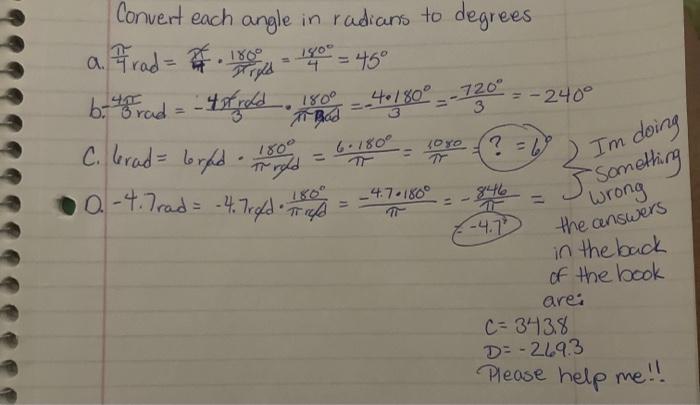 Convert each angle in radians to degrees
a. π/4 rad = π/4 · 180°/π rad = 180°/4 = 45°
b. -4π/3 rad = -4π rad/3 · 180°/π rad = -4·180°/3 = -720°/3 = -240°
C. 6 rad = 6 rad · 180°/π rad = 6·180°/π = 1080/π = ? = 6°
D. -4.7 rad = -4.7 rad · 180°/π rad = -4.7·180°/π = -846/π =
= -4.7°
Im doing
something
wrong
the answers
in the back
of the book
are:
C = 343.8
D = -269.3
Please help me!!